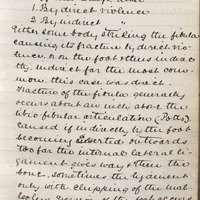 1. By direct violence
2. By indirect "
Either some body striking the fibular
causing its fracture by direct vio-
lence, or on the foot & thus indirect-
ly, indirect far the most com-
mon, this case was direct.
Fracture of the fibula generally
occurs about an inch above the
tibio-fibular articulation (Potts).
Caused if indirectly by the foot
becoming everted outwards
too far the internal lateral li-
gament gives way & then the
bone, sometimes the ligament
only with chipping of the mal-